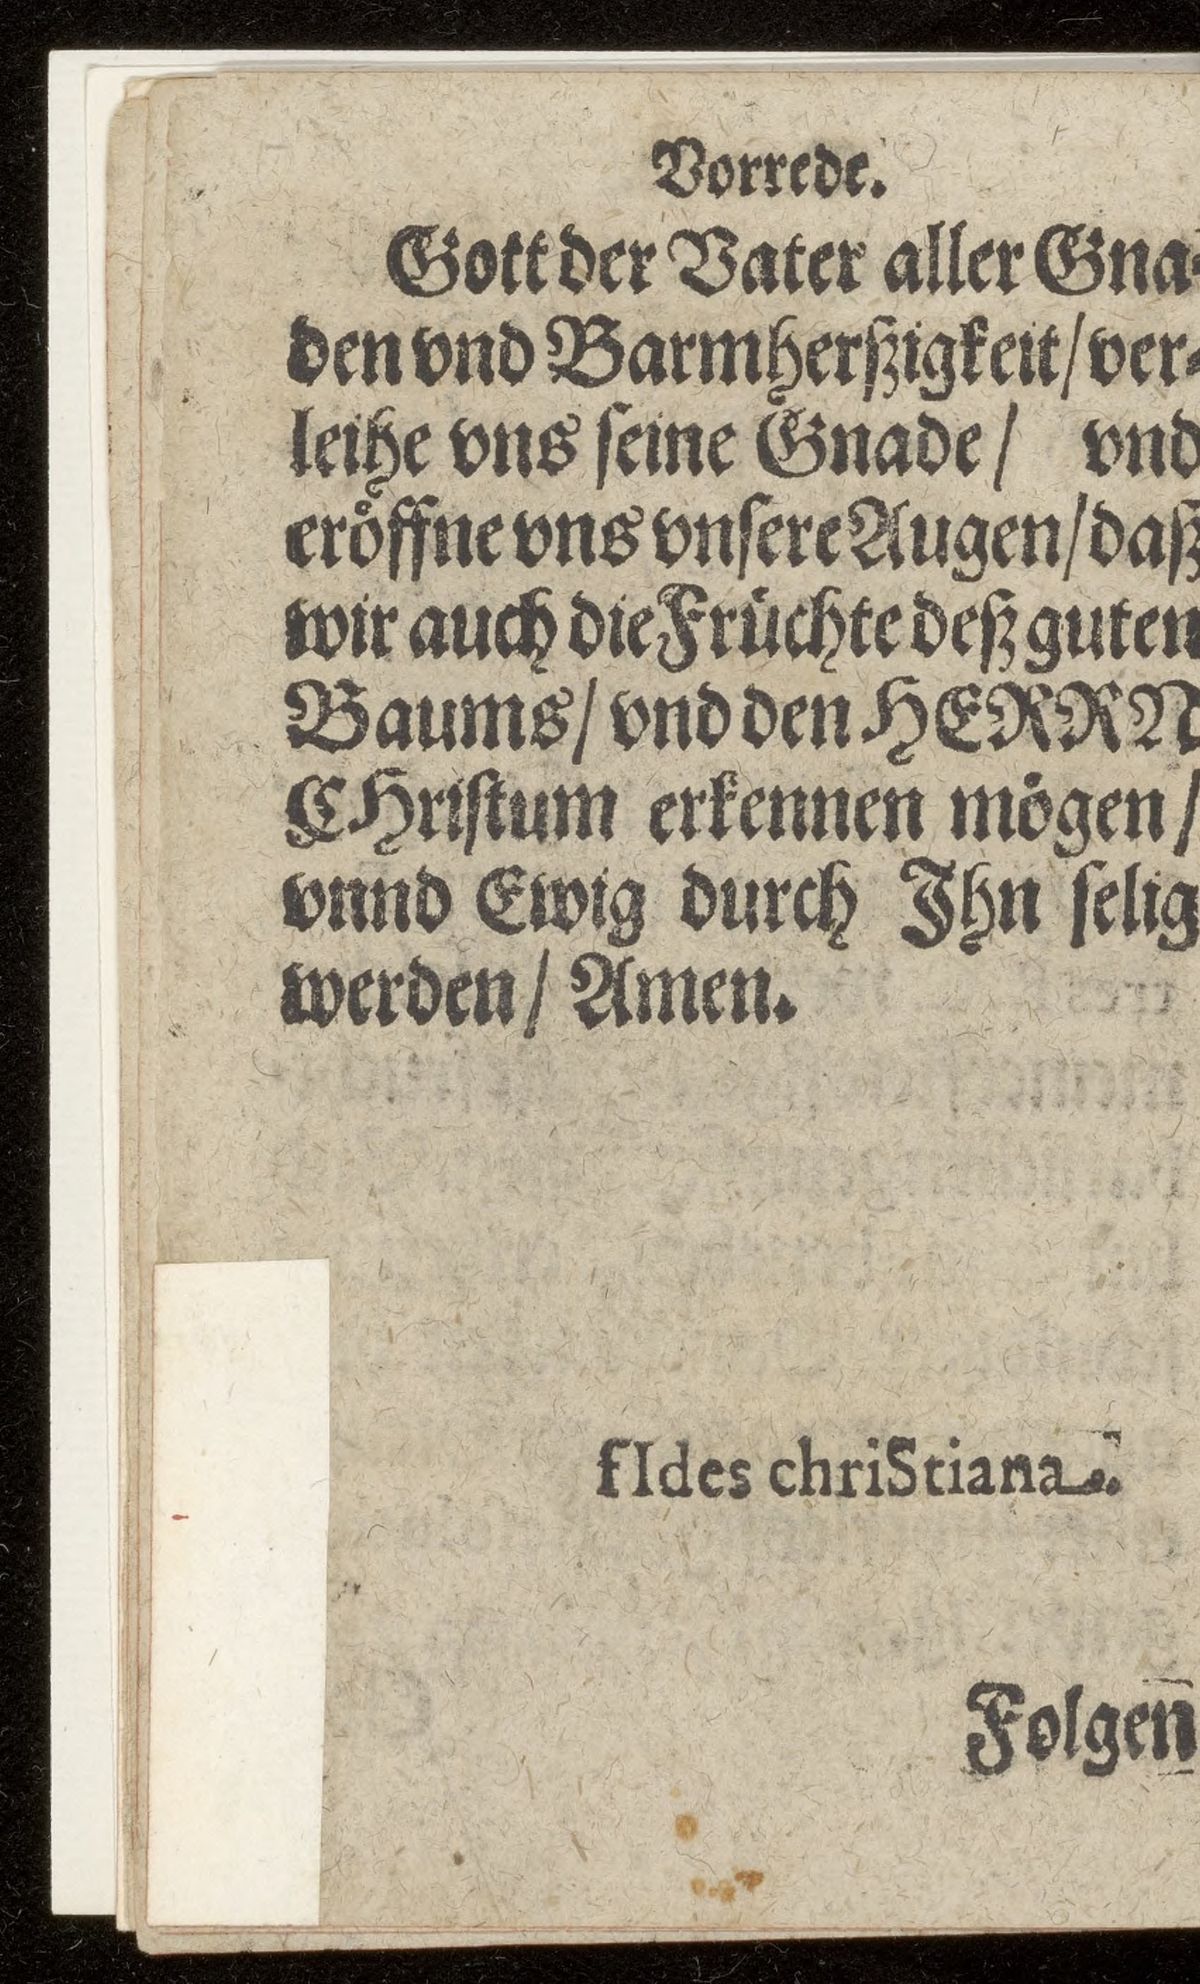 Vorrede.
Gott der Vater aller Gna-
den vnd Barmhertzigkeit/ ver-
leihe vns seine Gnade/ vnd
eröffne vns vnsere Augen/ daß
wir auch die Früchte deß guten
Baums/ vnd den HERRN
CHristum erkennen mögen/
vnnd Ewig durch Ihn selig
werden/ Amen.
fIdes chriStiana.
Folgen